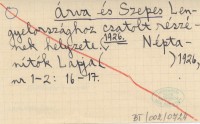 Árva és Szepes Len-
gyelországhoz csatolt részé-
nek helyzete. 1926. Népta-
nítók Lapja 1926,
nr 1-2: 16-17.
BT/002/0728